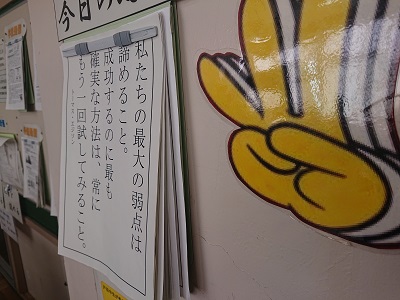 今日の
私たちの最大の弱点は
諦めること。
成功するのに最も
確実な方法は、常に
もう一回試してみること。